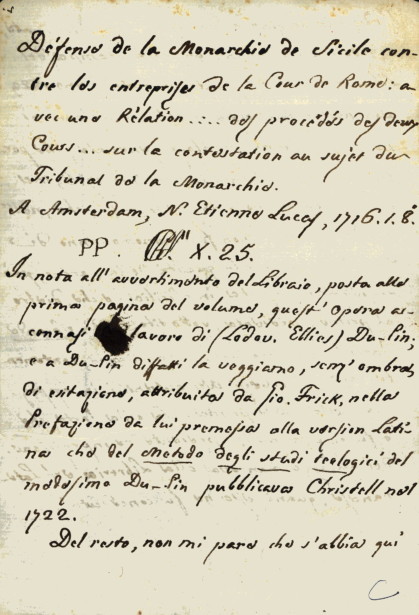 Défense de la Monarchie de Sicile con-
tre les entreprises de la Cour de Rome: a-
vec une Rélation .... des procédés des deux
Cours... sur la contestation au sujet du
Tribunal de la Monarchie.
A Amsterdam, N. Etienne Lucas, 1716. 1. 8º
PP. X. 25.
In nota all' avvertimento del Libraio, posto alla
prima pagina del volume, quest' Opera ac-
cennasi lavoro di (Lodov. Ellies) Du-Pin;
e a Du-Pin diffatti la veggiamo, senz' ombra
di esitazione, attribuita da Gio. Frick, nella
Prefazione da lui premessa alla version Lati-
na che del metodo degli studi teologici del
medesimo Du-Pin pubblicava Christell nel
1722.
Del resto, non mi pare che s'abbia qui